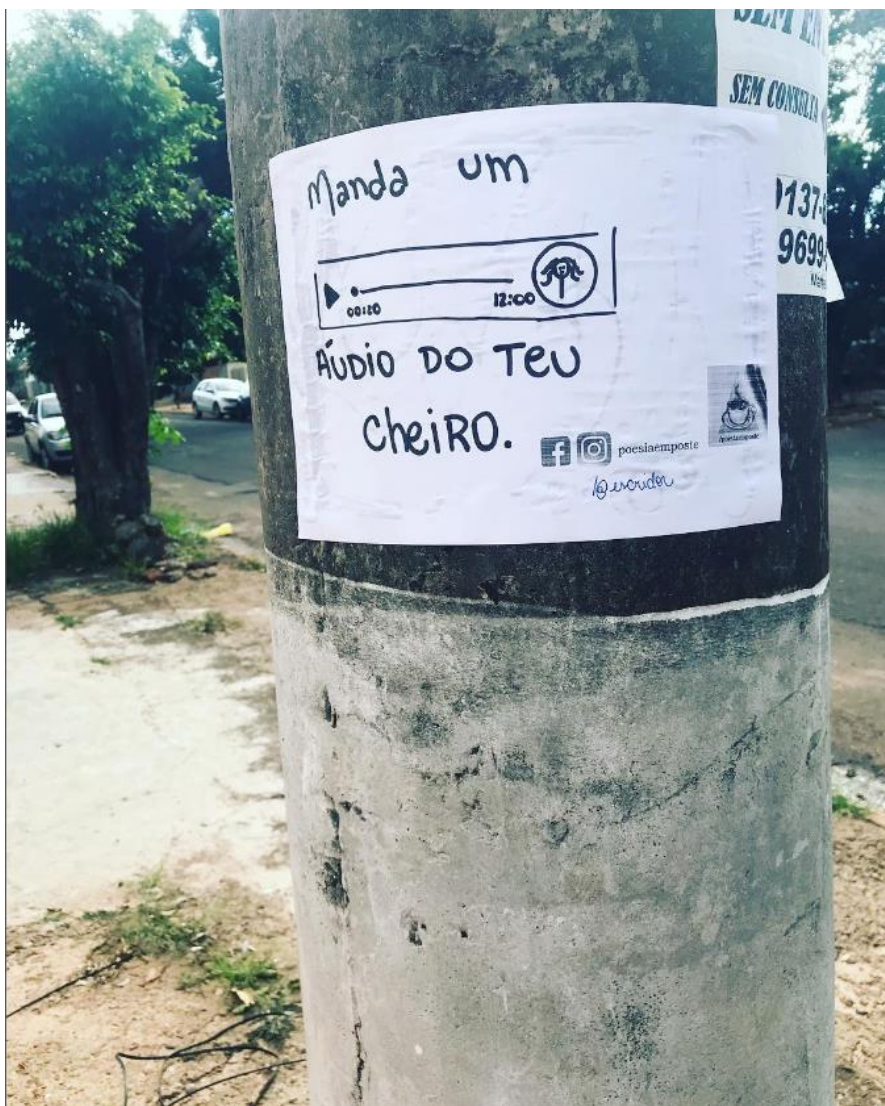 SEM CONSULTA
137-
9699-
Manda um
00:20
12:00
AÚDIO DO TEU
CheiRO.
poesiaemposte
/@escridor
/poesiaemposte